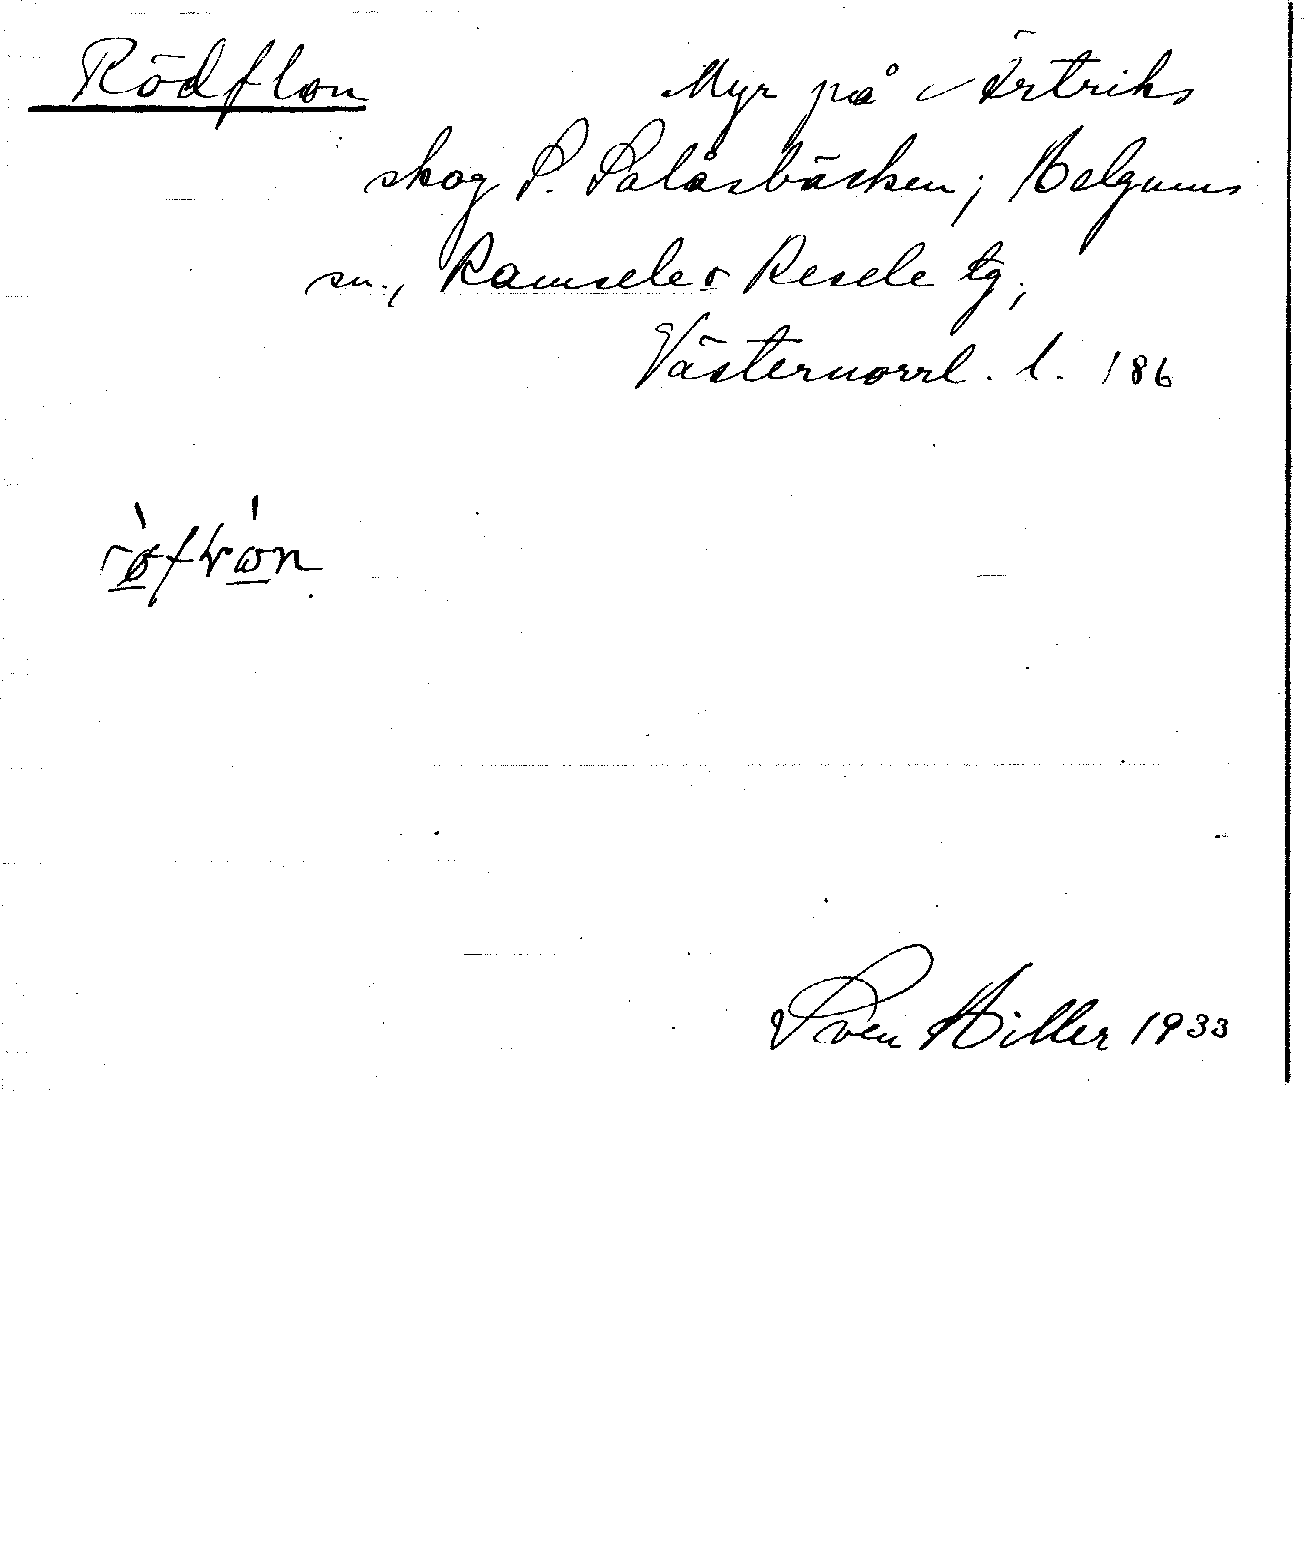 Rödflon Myr på Örtriks
skog S. Salåsbäcken; Helgums
sn., Ramsele o Resele tg,
Västernorrl. l. 186
Sven Hiller 1933